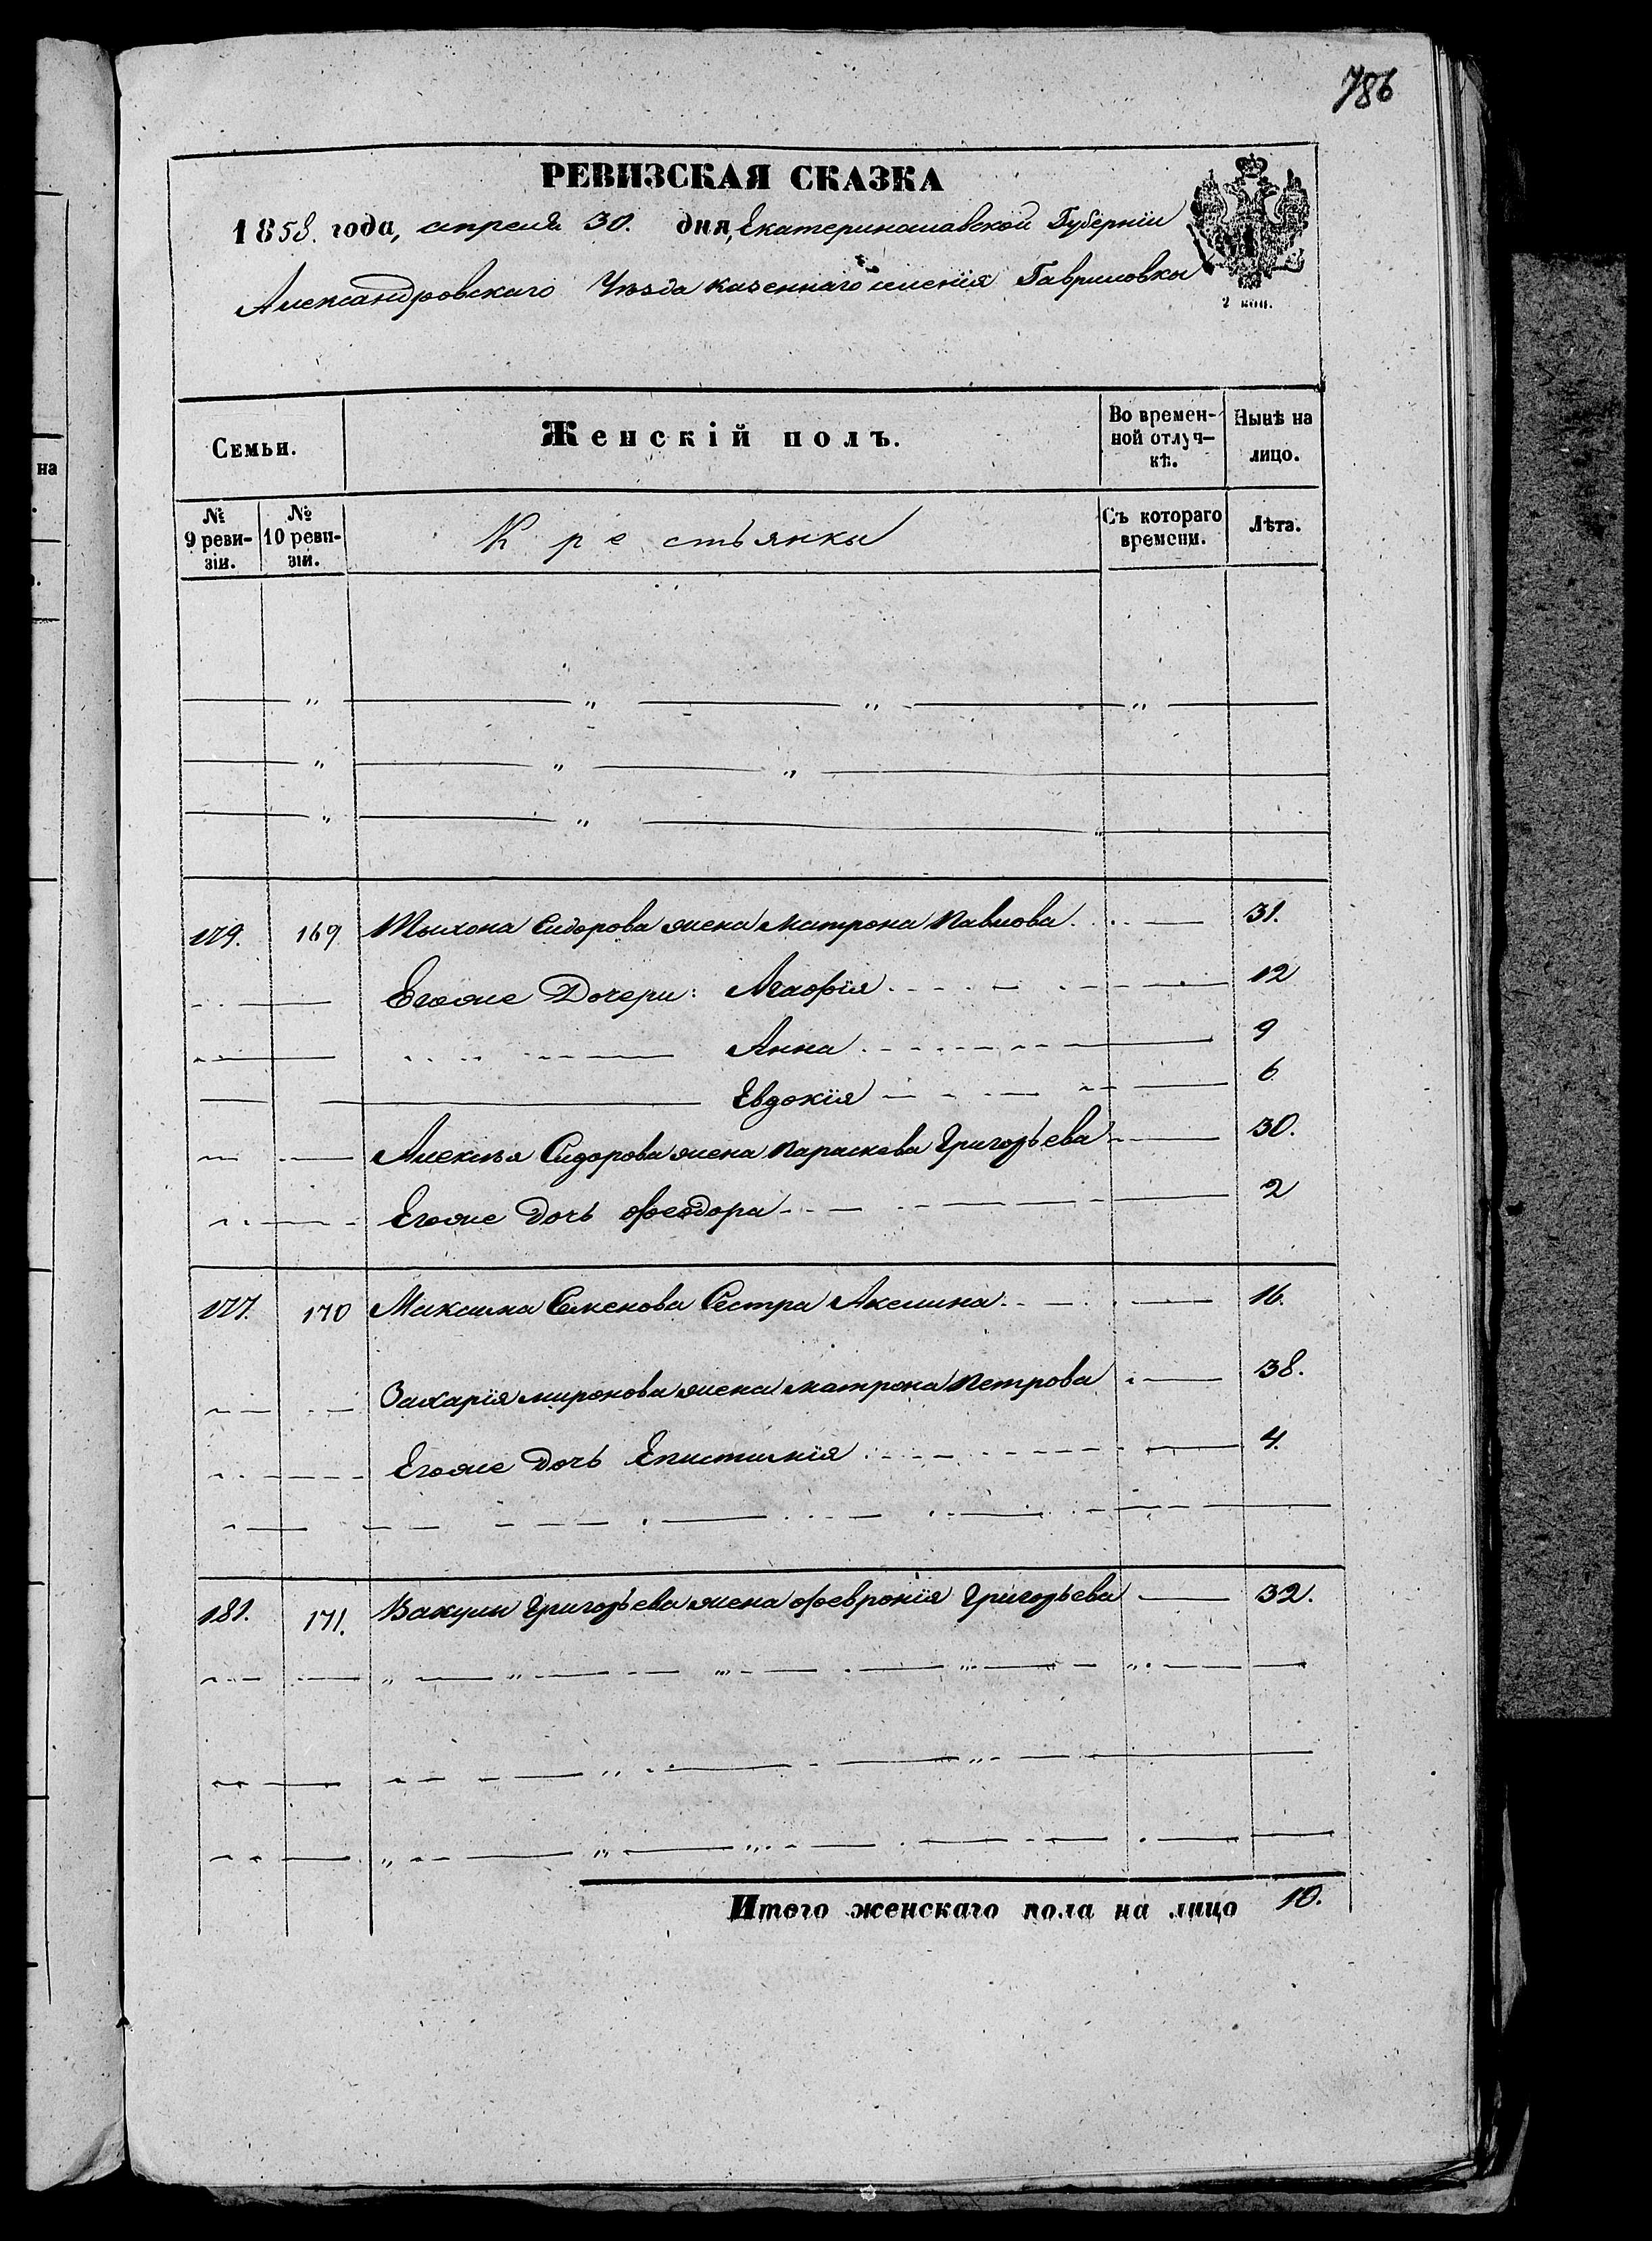 786
РЕВИЗСКАЯ СКАЗКА
1858. года, апреля 30. дня, Екатеринославской Губерніи
Александровскаго Уѣзда казеннаго селенія Гавриловки
2 коп.
Семьи. Женскій полъ. Во времен-ной отлуч-кѣ. Нынѣ на лицо.
№ 9 реви-зіи. № 10 реви-зіи. Крестьянки Съ котораго времени. Лѣта.
на
179. 169 Тыхона Сидорова жена Матрона Павлова. 31.
Егоже Дочери: Агафія 12
Анна 9
Евдокія 6
Алексѣя Сидорова жена Параскева Григорьева 30.
Егоже дочь Феодора 2
177. 170 Максима Семенова Сестра Акелина 16.
Захарія Миронова жена Матрона Петрова 38.
Егоже дочь Епистимія 4.
181. 171. Вакулы Григорьева жена Февронія Григорьева 32.
Итого женскаго пола на лицо 10.